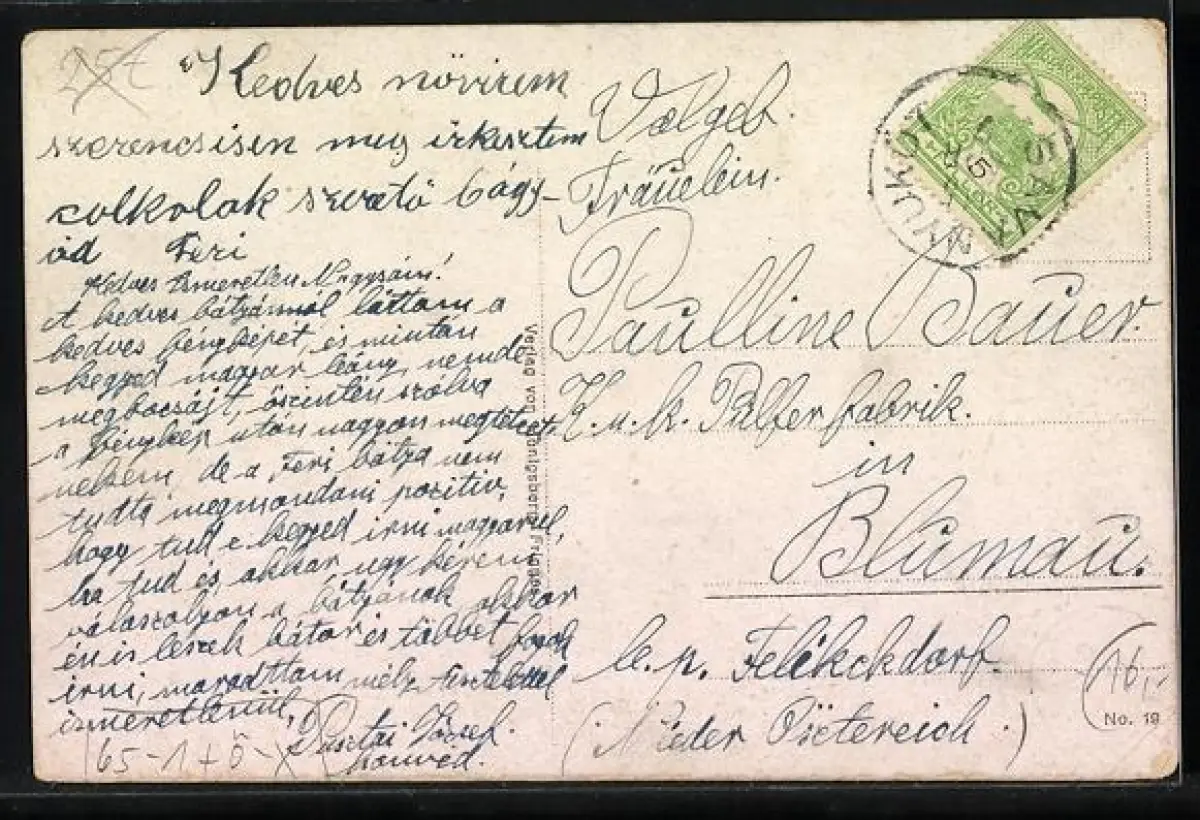 Kedves növirem
szerencsisen meg irkesztem
colkolak szerető bágy-
ád Feri
Kedves Ismeretlen Nagysám!
A kedves bátyánnál láttam a
kedves fényképét, és miután
kegyed magyar leány, nemde
megbocsájt, őszintén szólva
a fénykép után nagyon megtetszet
nekem, de a Feri bátya nem
tudta megmondani pozitiv,
hogy tud e kegyed irni magyarul,
ha tud és akkor ugy kérem,
válaszolyon a bátyának akkor
én is leszek bátor és többet fogok
irni, maradtam mély tisztelettel
ismeretlenül,
Pusztai József.
honvéd.
Fräuelein.
Paulline Bauer.
K. u. k. Pulferfabrik.
in
Blumau.
(Nieder Östereich.)
Verlag von
No. 19
16,-